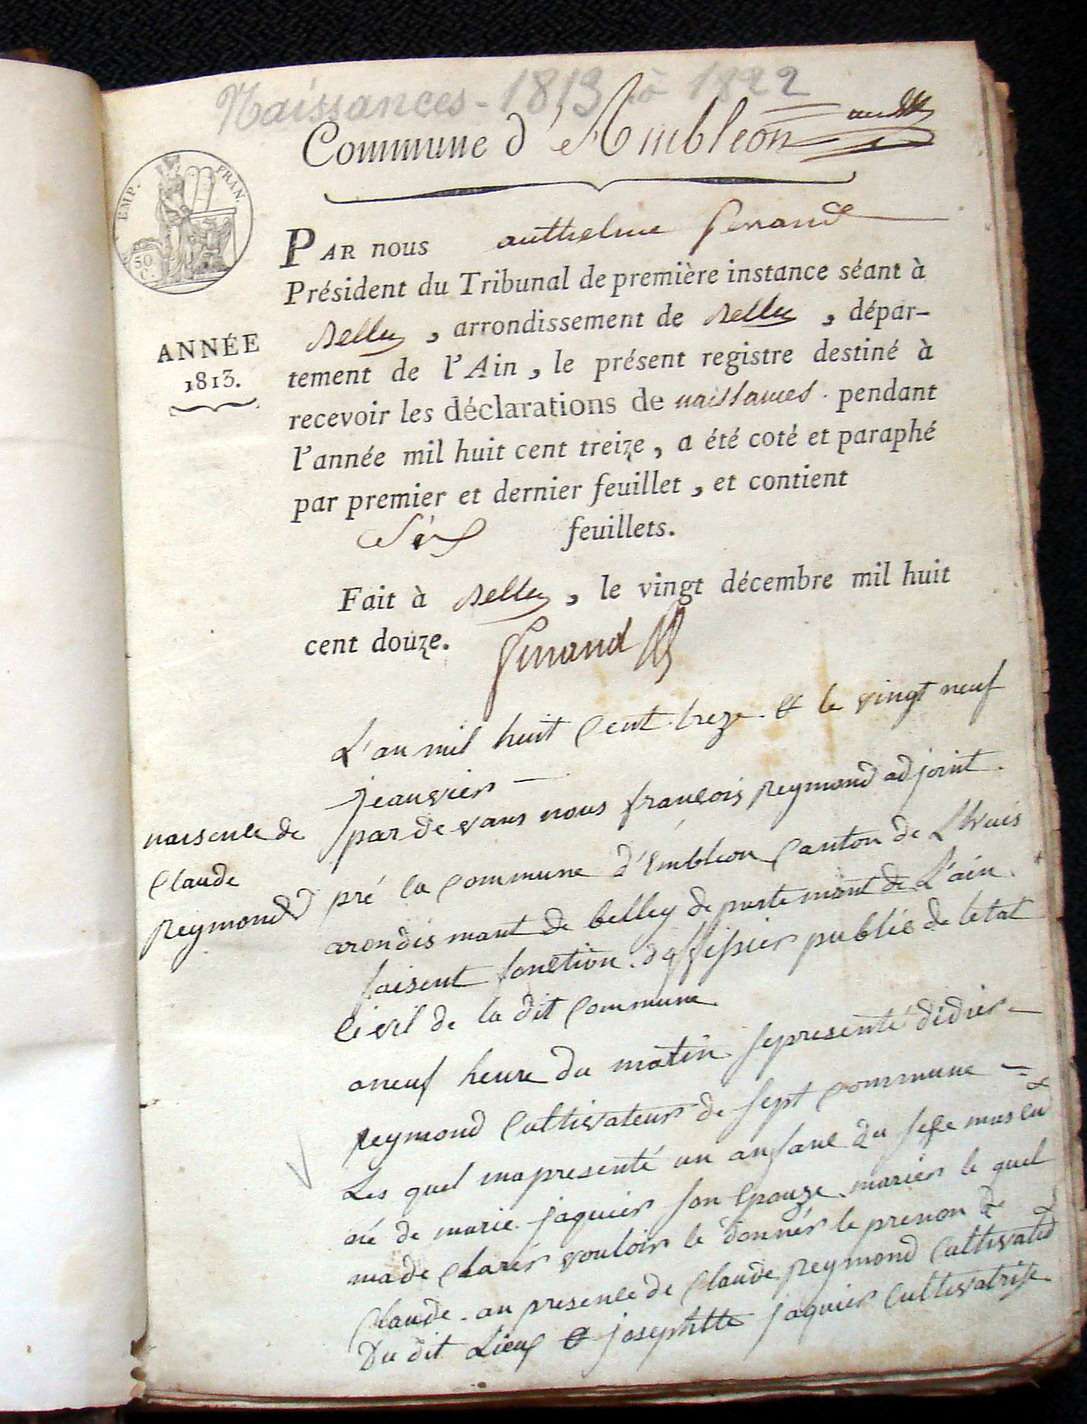 Naissances - 1813 à 1822
Commune d'Ambléon
EMP. FRAN.
50
C.
PAR nous anthelme Genand
Président du Tribunal de première instance séant à
Belley, arrondissement de Belley, dépar-
tement de l'Ain, le présent registre destiné à
recevoir les déclarations de naissances pendant
l'année mil huit cent treize, a été coté et paraphé
par premier et dernier feuillet, et contient
Six feuillets.
Fait à Belley, le vingt décembre mil huit
cent douze. Genand
ANNÉE
1813.
L'an mil huit Cent treze & le vingt neuf
jeanvier
par devans nous françois Reymond adjoint
pré la Commune d'embléon Canton de Lhuis
arondismant de belley departemant de L'ain
faisent fonction d'offisier publié de letat
Civil de la dit Commune
aneuf heure du matin sepresenté didier
Reymond Cultivateur de sept Commune
Les quel ma presenté un anfant du sexe masculin
né de marie jaquier son epouze marier le quel
made Clarer vouloir le donnér le prenon de
Claude au presence de Claude Reymond Cultivateur
Du dit Lieux & josephtte jaquier Cultivatrise
naisence de
Claude
Reymond